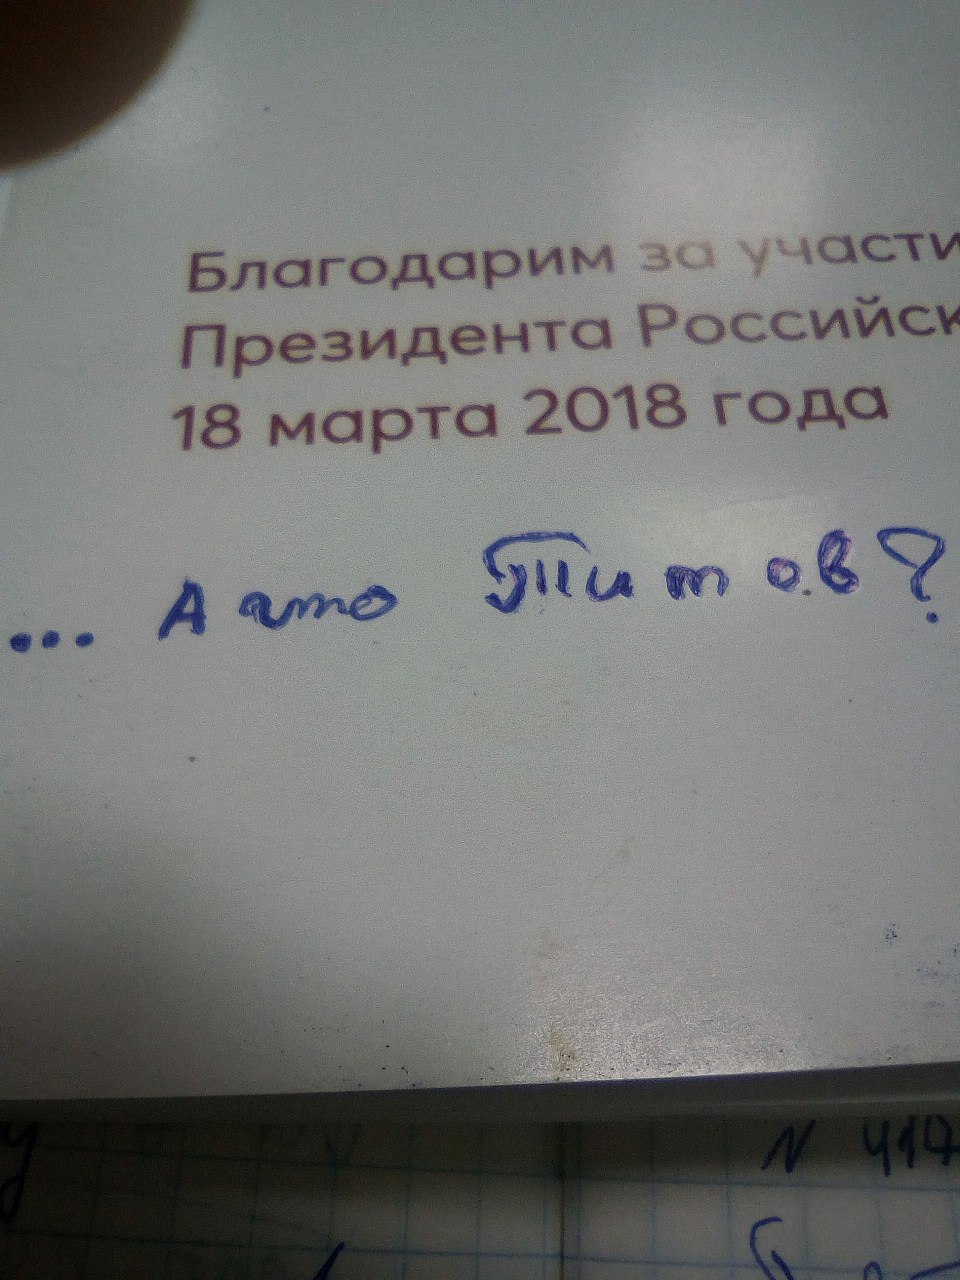 Благодарим за участи
Президента Российск
18 марта 2018 года
... А что Титов?
у
N 417